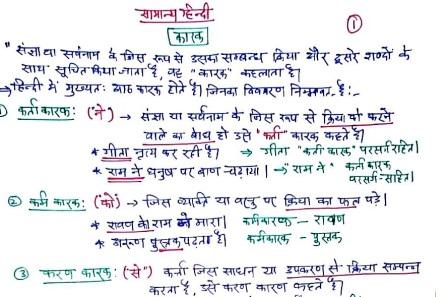 सामान्य हिन्दी
①
कारक
"संज्ञा या सर्वनाम के जिस रूप से उसका सम्बन्ध क्रिया और दूसरे शब्दों के
साथ सूचित किया जाता है, वह "कारक" कहलाता है।
→ हिन्दी में मुख्यतः आठ कारक होते हैं। जिनका विवरण निम्नवत् है:-
① कर्ता कारक: (ने) → संज्ञा या सर्वनाम के जिस रूप से क्रिया को करने
वाले का बोध हो उसे "कर्ता" कारक कहते हैं।
* गीता नृत्य कर रही है। → गीता "कर्ता कारक" परसर्ग रहित।
* राम ने धनुष पर बाण चढ़ाया। → "राम ने" कर्ता कारक
परसर्ग-सहित।
② कर्म कारक: (को) → जिस व्यक्ति या वस्तु पर क्रिया का फल पड़े।
* रावण को राम ने मारा। कर्मकारक - रावण
* अरुण पुस्तक पढ़ता है। कर्मकारक - पुस्तक
③ करण कारक: (से") कर्ता जिस साधन या उपकरण से क्रिया सम्पन्न
करता है, उसे करण कारण कहते हैं।